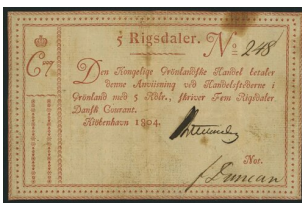 5 Rigsdaler. No 248
C7
Den Kongelige Grönlandske Handel betaler
denne Anviisning ved Handelsstederne i
Grönland med 5 Rdlr., skriver Fem Rigsdaler
Dansk Courant.
Kiöbenhavn 1804.
Not.
J Duncan